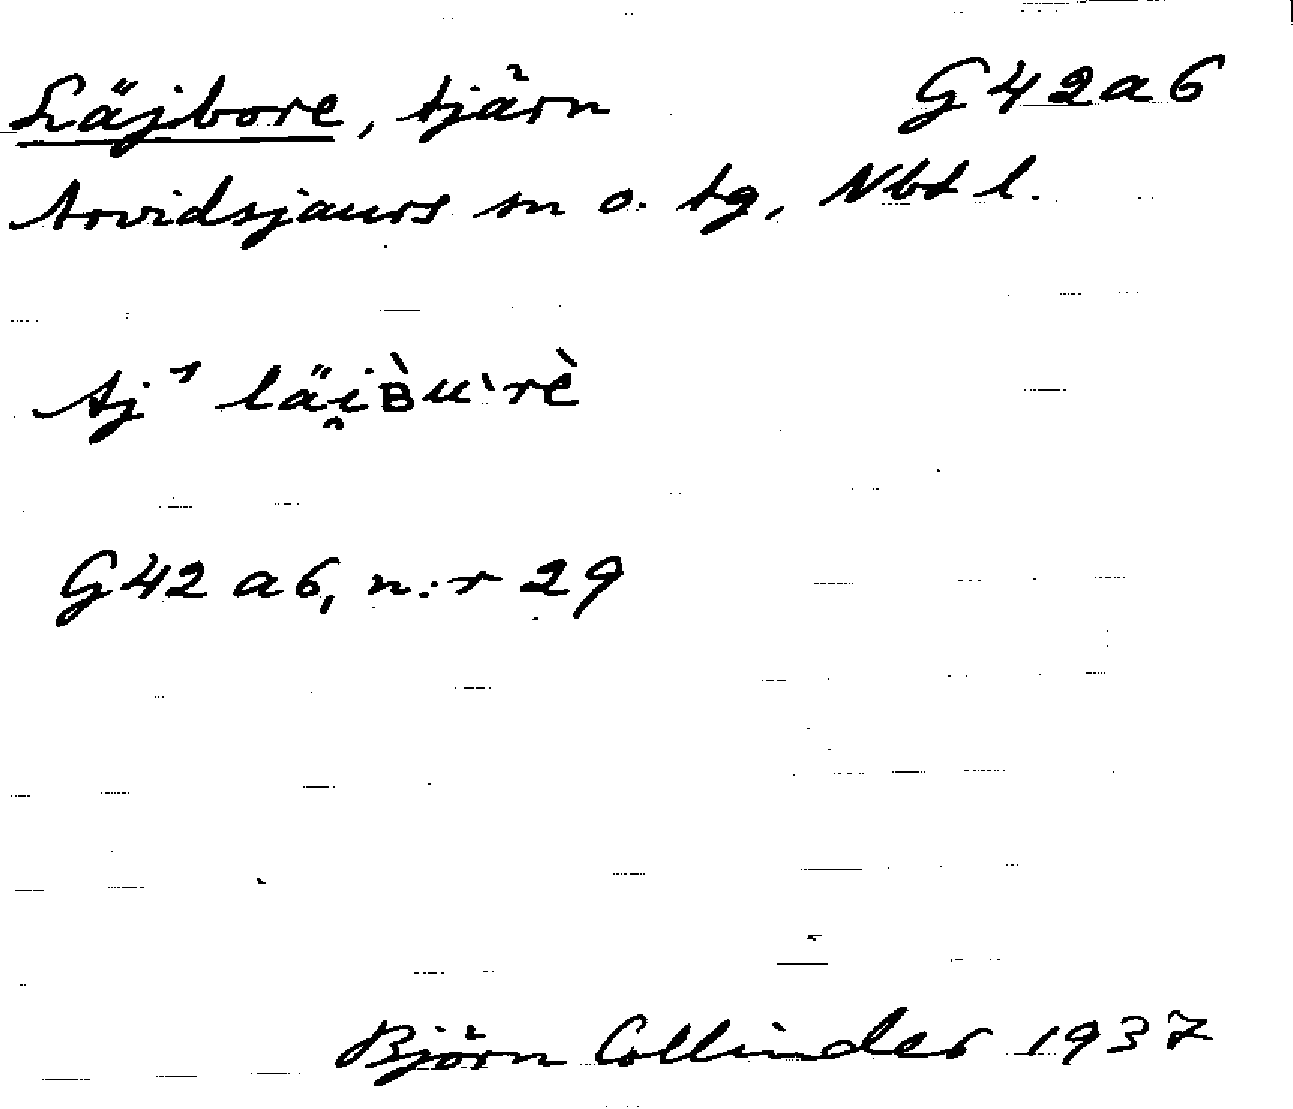 Läjbore, tjärn G42a6
Arvidsjaurs sn o. tg, Nbt l.
Aj¹ läi̯ʙ̀u`rè
G42 a6, n:r 29
Björn Collinder 1937